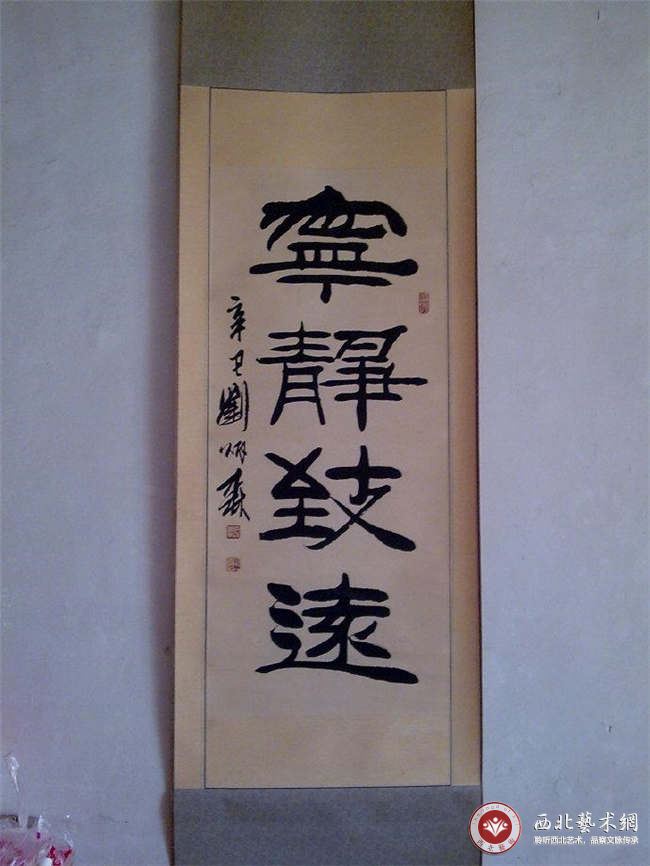 寧靜致遠
辛卯劉炳森
西北藝術網
聆听西北艺术，品察文脉传承